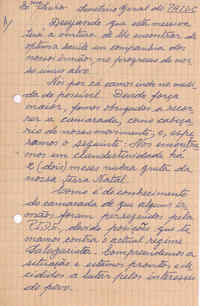 Exmo Senhor Secretário Geral do PAIGC
1)
Desejando que esta missiva
terá a ventura de lhe encontrar de
optima saude em companhia dos
nossos irmãos, no progresso do nos-
so serviço alvo.
Nós por cá vamos indo na medi-
da do possível. Dando força
maior, fomos obrigados a recor-
rer a camarada, como cabeça
rio do nosso movimento; e, espe-
ramos o seguinte: Nos encontra-
mos em clandestinidade há
2 (dois) meses nutra gruta da
nossa terra Natal.
Como é do conhecimento
de camarada de que alguns ir-
mãos foram perseguidos pela
P.I.D.E., devido posições que to-
mamos contra o actual regime
Salazarista. Compreendemos a
situação e estamos prontos e de-
cididos a lutar pelos interesses
do povo.